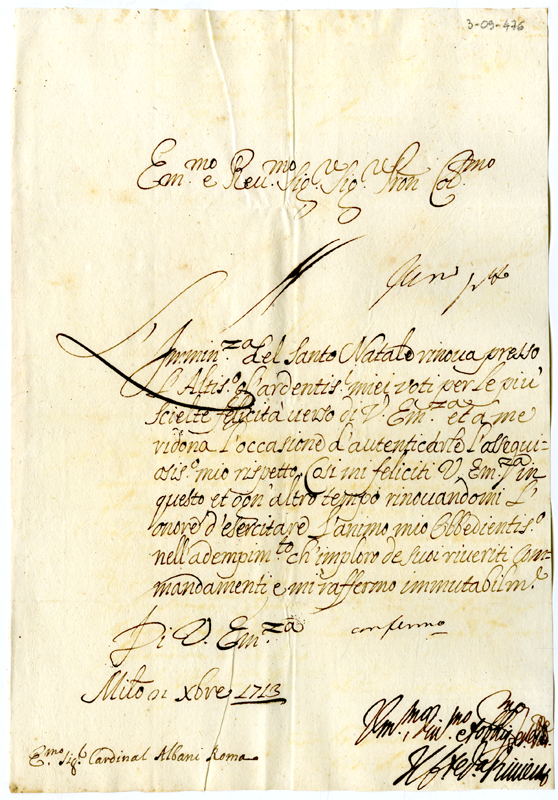 3-09-476
Em.mo e Reu.mo Sig.r Sig.r Pron Col.mo
L'Immin.za del Santo Natale rinoua presso
l'Altis.o gl'ardentis.i miei voti per le più
scielte felicità verso di V. Em.za et a me
ridona l'occasione d'autenticarle l'assequi=
osis.o mio rispetto, Così mi feliciti V. Em.za in
questo et ogn'altro tempo rinouandomi l'
onore d'esercitare l'animo mio Obbedientis.o
nell'adempim.to ch'imploro de suoi riueriti Com=
mandamenti e mi raffermo immutabilm.e
Di V. Em.za confermo
Mil.o 21 Xbre 1713
E.mo Sig.r Cardinal Albani Roma